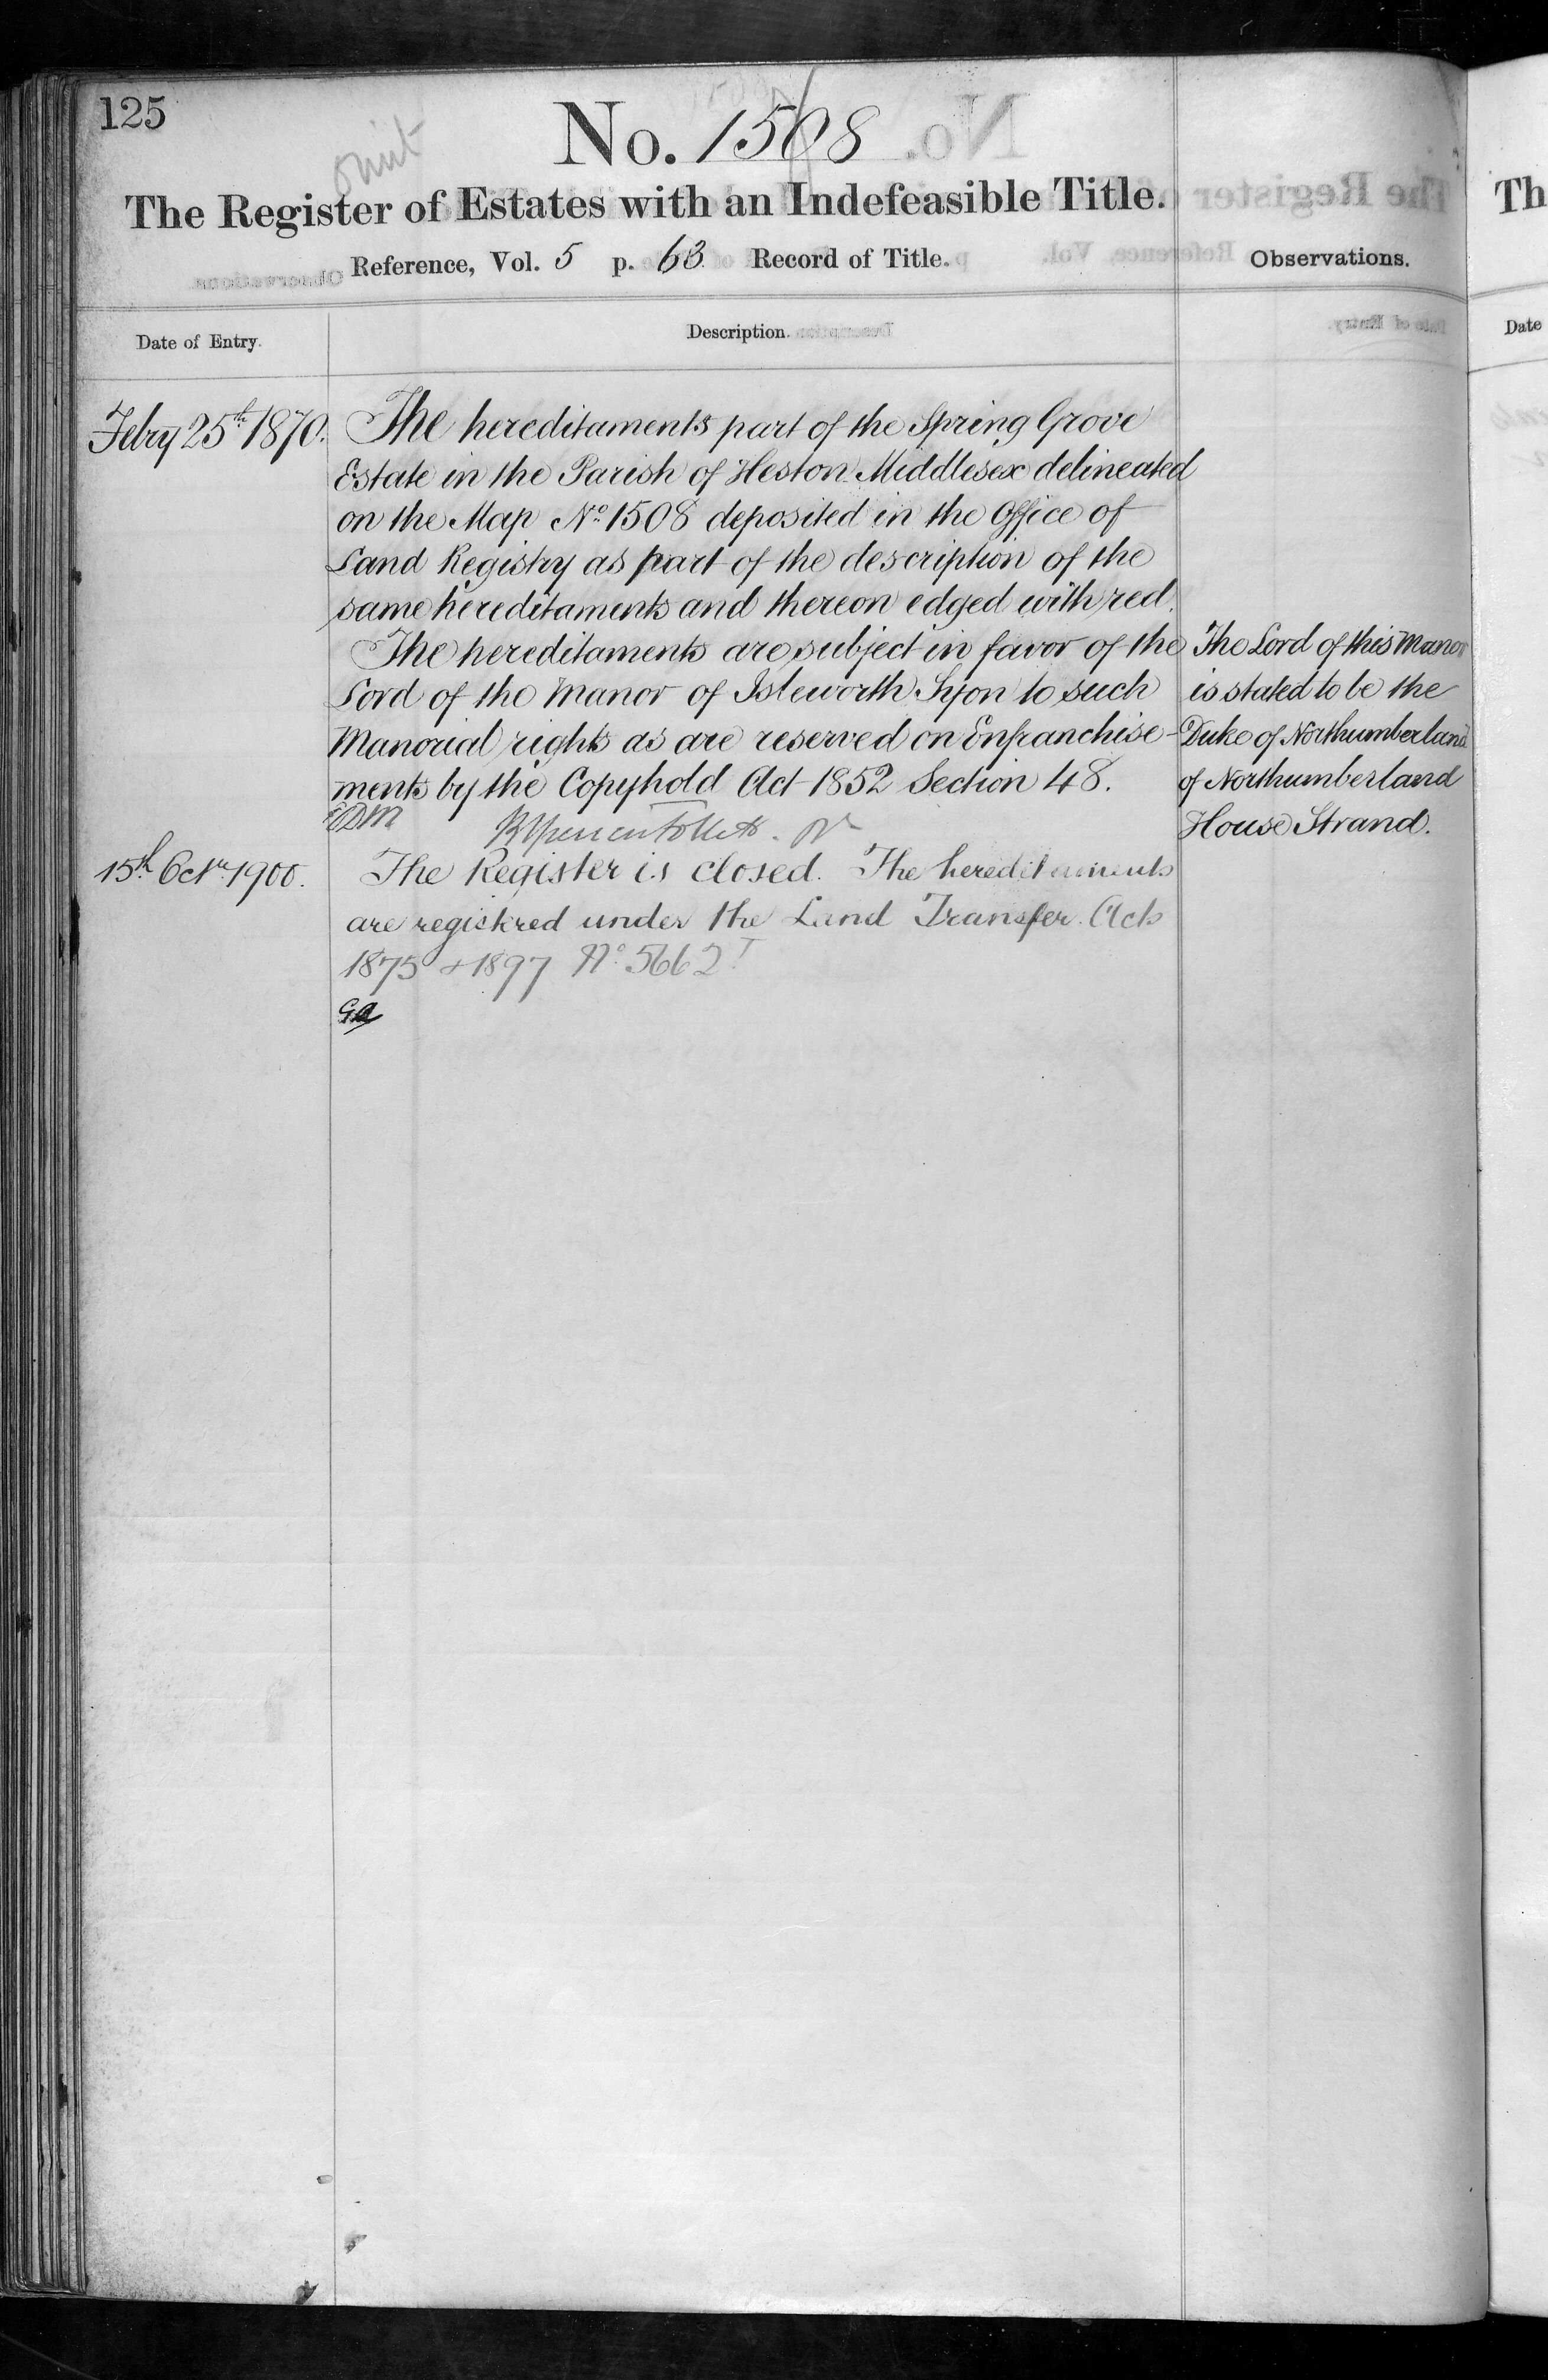 125
No. 1508
omit
The Register of Estates with an Indefeasible Title.
Reference, Vol. 5 p. 63. Record of Title.
Observations.
Date of Entry.
Description.
Febry 25th 1870.
The hereditaments part of the Spring Grove
Estate in the Parish of Heston Middlesex delineated
on the Map No. 1508 deposited in the Office of
Land Registry as part of the description of the
same hereditaments and thereon edged with red.
The hereditaments are subject in favor of the
Lord of the Manor of Isleworth Syon to such
Manorial rights as are reserved on Enfranchise-
ments by the Copyhold Act 1852 Section 48.
The Lord of this Manor
is stated to be the
Duke of Northumberland
of Northumberland
House Strand.
15th Octr 1900.
The Register is closed. The hereditaments
are registered under the Land Transfer Acts
1875 & 1897 No. 5662
Th
Date